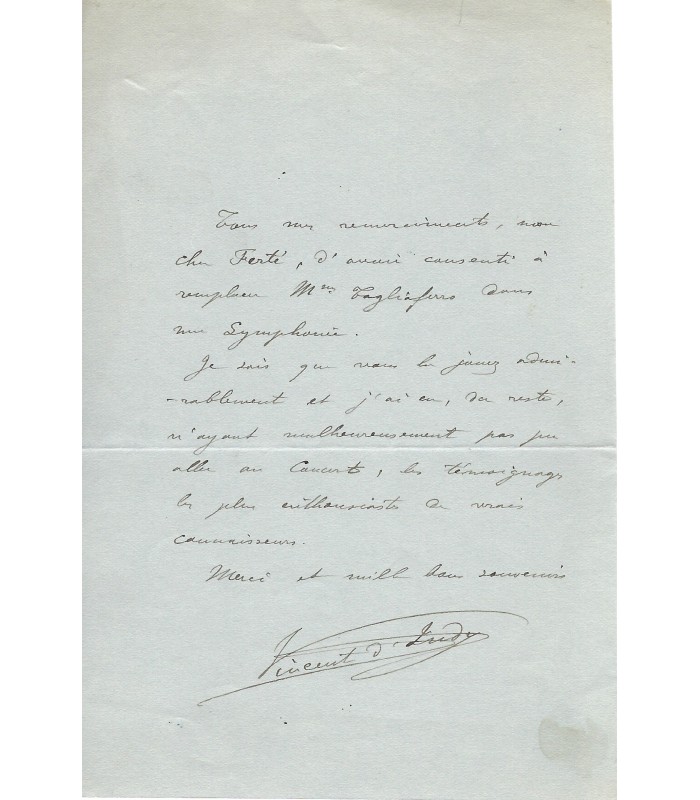 Tous mes remerciments, mon
cher Ferté, d'avoir consenti à
remplacer Mme Tagliaferro dans
ma Symphonie.
Je sais que vous la jouez admi-
-rablement et j'ai eu, du reste,
n'ayant malheureusement pas pu
aller au Concert, les témoignages
les plus enthousiastes de vrais
connaisseurs.
Merci et mille bons souvenirs
Vincent d'Indy